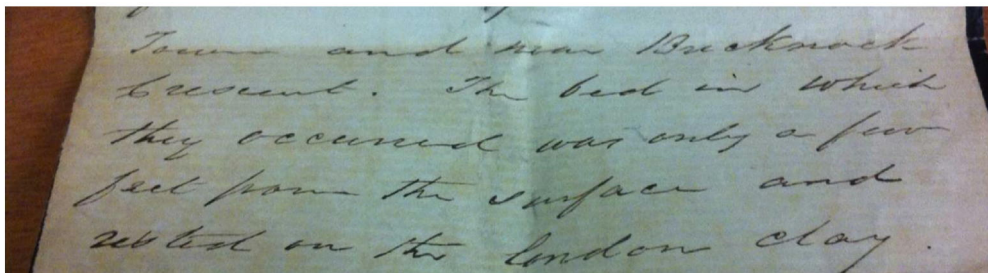 Town and near Brecknock
Crescent. The bed in which
they occurred was only a few
feet from the surface and
rested on the London clay.